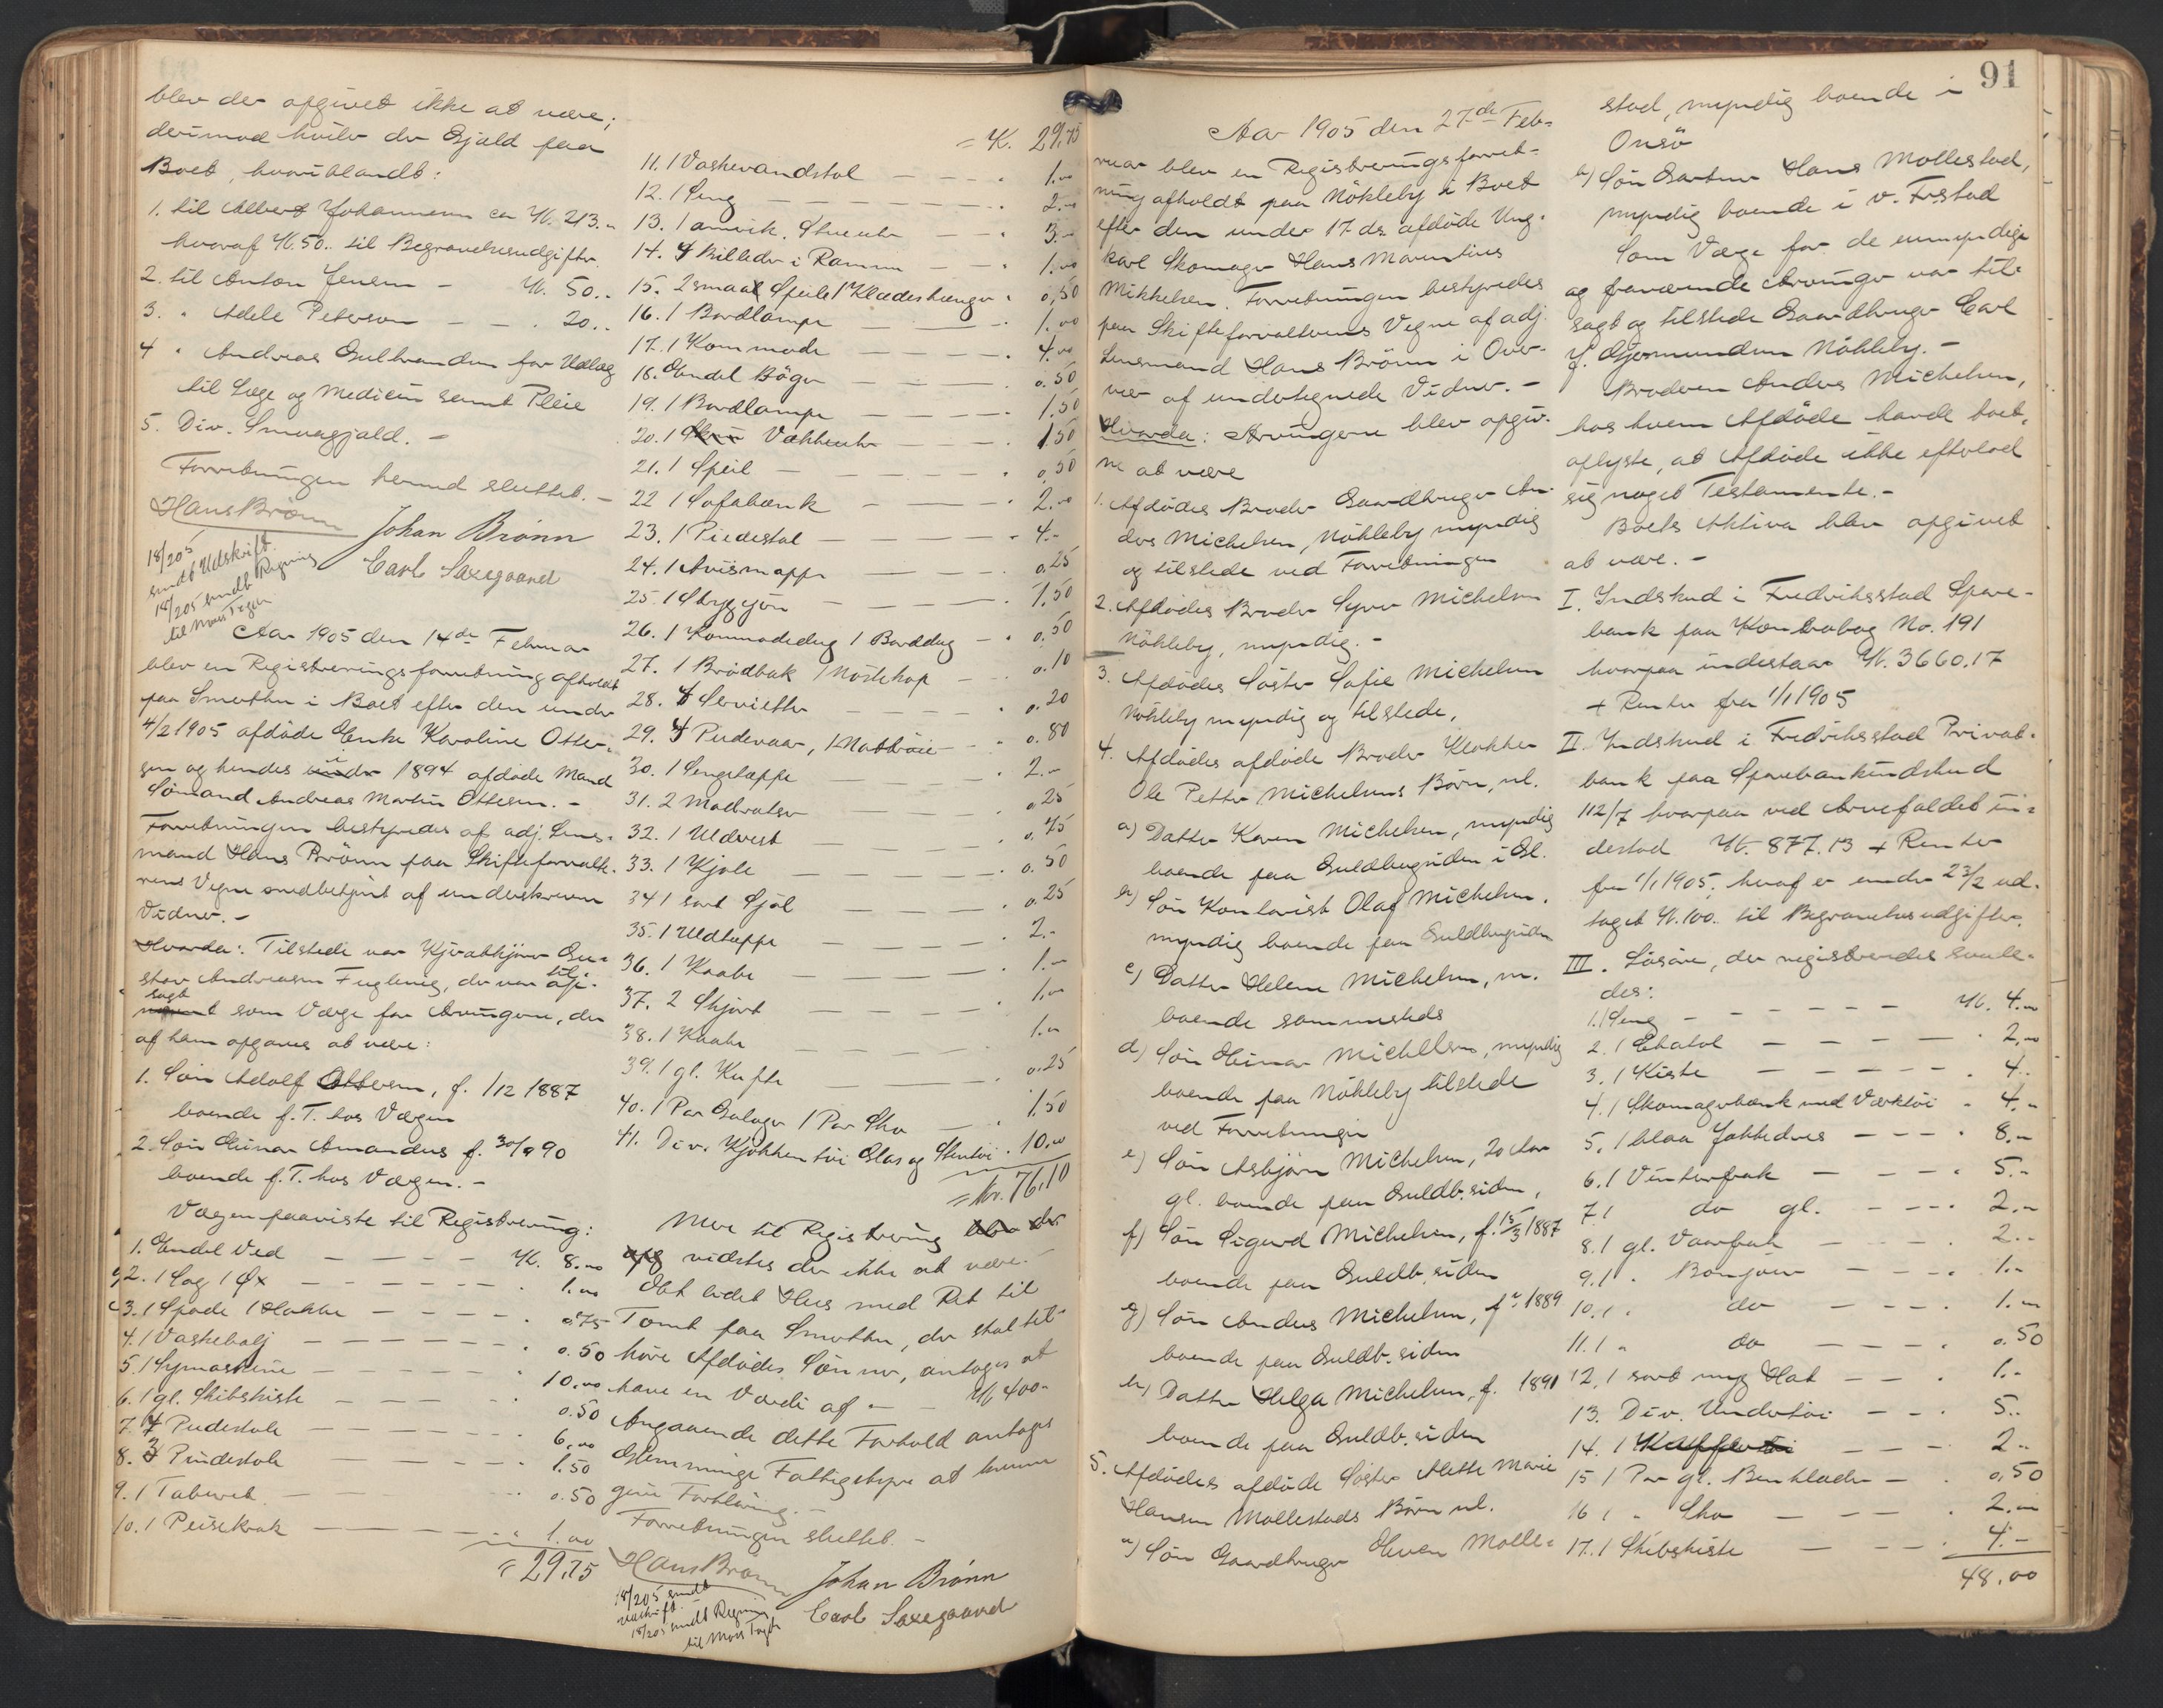 blev der opgivet ikke at være;
derimod hviler der Gjæld paa
Boet, hvoriblandt:
1. til Albert Johannesen ca Kr. 213.-
hvoraf Kr. 50.. til Begravelsesudgifter.
2. til Anton Jensen - Kr. 50..
3. " Adele Peterson - - . 20..
4 " Andreas Gulbrandsen for Udlæg
til Læge og Medicin samt Pleie
5. Div. Smaagjæld. -
Forretningen hermed sluttet. -
Hans Brönn
Johan Brönn
Carl Saxegaard
18/2 05
sendt Udskrift.
18/2 05 sendt Regning
til Moss Fogd
Aar 1905 den 14de Februar
blev en Registreringsforretning afholdt
paa Smerthu i Boet efter den under
4/2 1905 afdöde Enke Karoline Otter-
sen og hendes i 1894 afdöde Mand
Sömand Andreas Martin Ottersen. -
Forretningen bestyredes af adj. Lens-
mand Hans Brönn paa Skifteforvalte-
rens Vegne medbetjent af underskrevne
Vidner. -
Hvorda: Tilstede var Gu-
stav Andreasen Fuglevig, der var til-
sagt som Værge for Arvingerne, der
af ham opgaves at være:
1. Sön Adolf Ottersen, f. 1/12 1887
boende f. T. hos Værgen
2. Sön Einar Amandus f. 30/9 90
boende f. T. hos Værgen. -
Værgen paaviste til Registrering:
1. Endel Ved - - - - Kr. 8.00
2. 1 Sag 1 Öx - - - - - 1.00
3. 1 Spade 1 Hakke - - - - 0.75
4. 1 Vaskebalj - - - - - 0.50
5. 1 Symaskine - - - - 10.00
6. 1 gl. Skibskiste - - - 0.50
7. 4 Pindestole - - - - - 6.00
8. 3 Pindestole - - - - 1.50
9. 1 Taburet - - - - 0.50
10. 1 Peisekrak - - - - 1.00
= 29.75
= K. 29.75
11. 1 Vaskevandstol - - - 1.00
12. 1 Seng - - - - - 2.-
13. 1 amrik. Stueuhr - - 3.-
14. 4 Billeder i Ramme - - 1.00
15. 2 smaa Speile 1 Klædeshænger . 0,50
16. 1 Bordlampe - - - 1.00
17. 1 Kommode - - - 4.00
18. Endel Böger - - - 0.50
19. 1 Bordlampe - - - 1.50
20. 1 Vækkeuhr - - 1 50
21. 1 Speil - - - - 0,50
22 1 Sofabænk - - - 2.00
23. 1 Piedestal - - - - 4.-
24. 1 Avismappe - - - 0.25
25. 1 Strygejern - - - 1.50
26. 1 Kommodedug 1 Borddug - . 0.50
27. 1 Brödbak 1 - - 0.10
28. 4 Servietter - - - 0.20
29. 4 Pudevaar, 1 Nattröie - - 0.80
30. 1 Sengetæppe - - - 2.-
31. 2 Madratser - - - 0.25
32. 1 Uldvest - - - 0.75
33. 1 Kjole - - - - 0.50
34 1 sort Sjal - - - 0.25
35. 1 Uldtæppe - - - 2.-
36. 1 Kaabe - - - 1.-
37. 2 Skjört - - - 1.00
38. 1 Kaabe - - - 1.-
39. 1 gl. Kufte - - - 0.25
40. 1 Par Galoger 1 Par Sko - . 1.50
41. Div. Kjökkentöi Glas og Stentöi . 10.00
= Kr. 76,10
Mere til Registrering
vidstes der ikke at være. -
Et lidet Hus med Ret til
Tomt paa Smerthu, der skal til-
höre Afdödes Sönner, antages at
have en Værdi af - - Kr 400-
Angaaende dette Forhold antages
Glemminge Fattigstyre at kunne
give Forklaring. -
Forretningen sluttet. -
Hans Brönn
Johan Brönn
Carl Saxegaard
18/2 05 sendt
udskrift. -
18/2 05 sendt Regning
til Moss Fogd
91
Aar 1905 den 27de Feb-
ruar blev en Registreringsforret-
ning afholdt paa Nökleby i Boet
efter den under 17 ds. afdöde Ung-
karl Skomager Hans Maurentius
Mikkelsen. Forretningen bestyredes
paa Skifteforvalterens Vegne af adj.
Lensmand Hans Brönn i Over-
vær af undertegnede Vidner. -
Hvorda: Arvingerne blev opgiv-
ne at være
1. Afdödes Broder Gaardbruger An-
ders Michelsen, Nökleby myndig
og tilstede ved Forretningen
2. Afdödes Broder Syver Michelsen
Nökleby, myndig. -
3. Afdödes Söster Sofie Michelsen
Nökleby myndig og tilstede.
4. Afdödes afdöde Broder Klokker
Ole Petter Michelsens Börn, nl.
a) Datter Karen Michelsen, myndig
boende paa Guldbergsiden i Gl.
b) Sön Kontorist Olaf Michelsen.
myndig boende paa Guldbergsiden
c) Datter Helene Michelsen, m.
boende sammesteds
d) Sön Einar Michelsen, myndig
boende paa Nökleby tilstede
ved Forretningen
e) Sön Asbjörn Michelsen, 20 Aar
gl. boende paa Guldb.siden,
f) Sön Sigurd Michelsen, f. 15/3 1887
boende paa Guldb.siden
g) Sön Anders Michelsen, f. 1889
boende paa Guldb.siden
h) Datter Helga Michelsen, f. 1891
boende paa Guldb.siden
5. Afdödes afdöde Söster Mette Marie
Hansen Mallestads Börn nl.
a) Sön Gaardbruger Even Malle-
stad, myndig boende i
Onsö
b) Sön Gartner Hans Mollestad,
myndig boende i v. Frstad
Som Værge for de umyndige
og fraværende Arvinger var til-
sagt og tilstede Gaardbruger Carl
J. Gjermundsen Nökleby. -
Broderen Anders Michelsen,
hos hvem Afdöde havde boet,
oplyste, at Afdöde ikke efterlod
sig noget Testamente. -
Boets Aktiva blev opgivet
at være. -
I. Indskud i Fredriksstad Spare-
bank paa Kontrabog No. 191
hvorpaa indestaar Kr. 3660.17
+ Renter fra 1/1 1905
II. Indskud i Fredriksstad Privat-
bank paa Sparebankindskud
112/7 hvorpaa ved Arvefaldet in-
destod Kr. 877.13 + Renter
fra 1/1 1905; hvoraf er under 23/2 ud-
taget Kr. 100.. til Begravelsesudgifter.
III. Lösöre, der registreredes saale-
des:
1. 1 Seng - - - - - Kr. 4.00
2. 1 Chatol - - - - . 2,00
3. 1 Kiste - - - - - . 4..
4. 1 Skomagerbænk med Værktöi . 4.-
5. 1 blaa Jakkedres - - - . 8.-
6. 1 Vinterfrak - - - . 5.-
7. 1 do gl. - - - . 2.-
8. 1 gl. Vaarfrak - - - 2..
9. 1 " Bonjour - - - . 1.-
10. 1 " do - - - . 1.-
11. 1 " do - - - . 0.50
12. 1 sort myg Hat - - . 1.-
13. Div. Undertöi - - . 5..
14. 1 - - - 2..
15 1 Par gl. Benklæder - . 0,50
16 1 " Sko - - - . 2.-
17. 1 Skibskiste - - - . 4.-
48.00